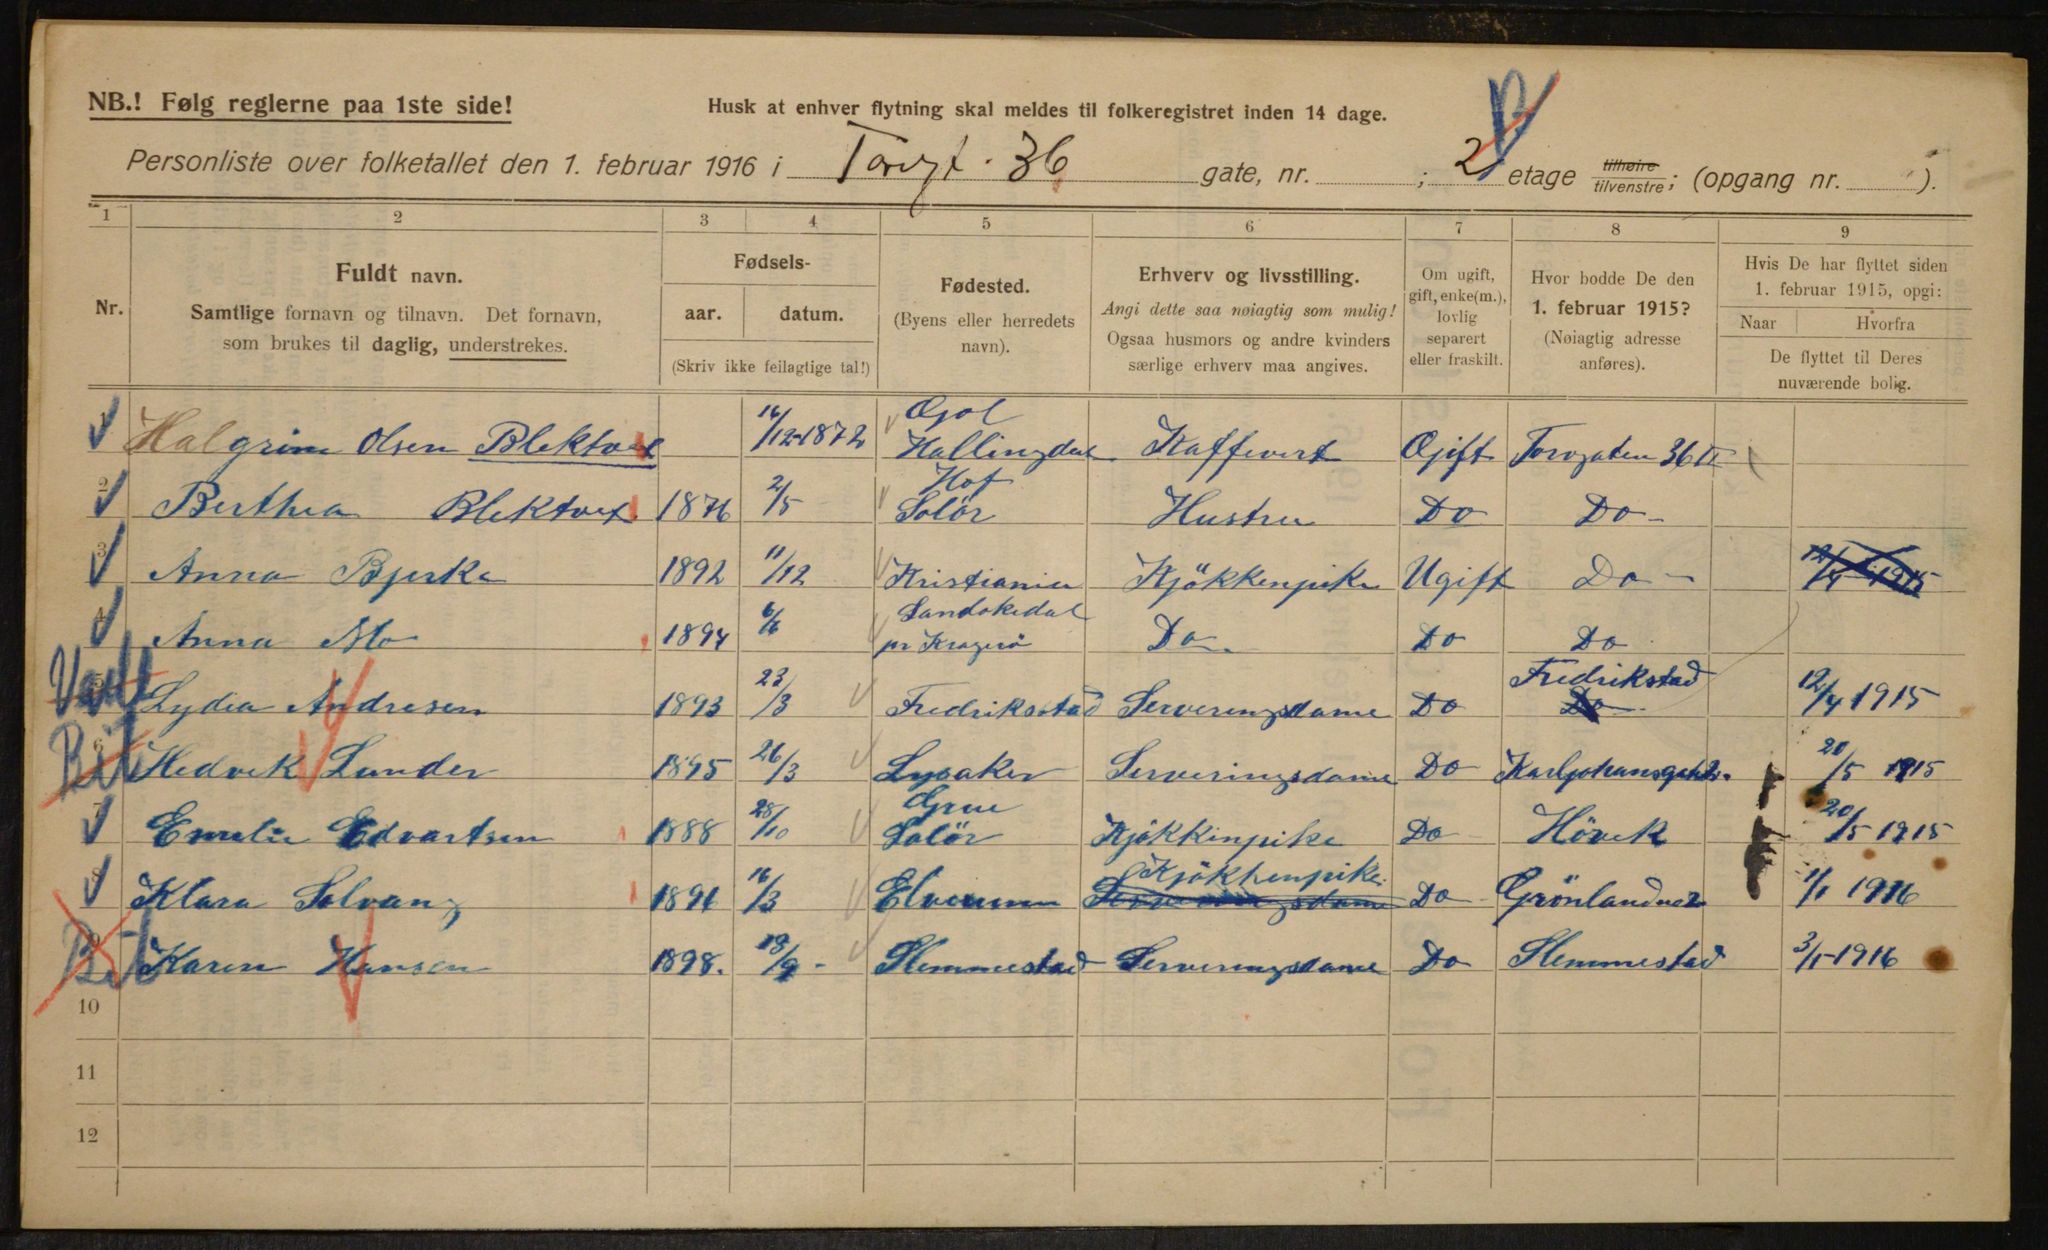 NB.! Følg reglerne paa 1ste side!
Husk at enhver flytning skal meldes til folkeregistret inden 14 dage.
Personliste over folketallet den 1. februar 1916 i Torvgt. 36 gate, nr. ; 2 etage tilhøire tilvenstre; (opgang nr. ).
1 2 3 4 5 6 7 8 9
Nr.
Fuldt navn.
Samtlige fornavn og tilnavn. Det fornavn,
som brukes til daglig, understrekes.
Fødsels-
aar. datum.
(Skriv ikke feilagtige tal!)
Fødested.
(Byens eller herredets
navn).
Erhverv og livsstilling.
Angi dette saa nøiagtig som mulig!
Ogsaa husmors og andre kvinders
særlige erhverv maa angives.
Om ugift,
gift, enke(m.),
lovlig
separert
eller fraskilt.
Hvor bodde De den
1. februar 1915?
(Nøiagtig adresse
anføres).
Hvis De har flyttet siden
1. februar 1915, opgi:
Naar Hvorfra
De flyttet til Deres
nuværende bolig.
1 Halgrim Olsen Blektvet 16/12-1872 Gol Hallingdal Kaffevert Gift Torvgaten 36 II
2 Berthea Blektvet 1876 2/5 Hof Solör Hustru Do Do
3 Anna Bjerke 1892 11/12 Kristiania Kjökkenpike Ugift Do 12/4 1915
4 Anna Mo 1894 6/6 Sandökedal pr Kragerö Do Do Do
5 Lydia Andresen 1893 23/3 Fredrikstad Serveringsdame Do Fredrikstad Do 12/4 1915
6 Hedvik Lunder 1895 26/3 Lysaker Serveringsdame Do Karljohansgt 2. 20/5 1915
7 Emelie Edvartsen 1888 28/10 Grue Solör Kjökkinpike Do Hövik 20/5 1915
8 Klara Solvang 1891 16/3 Elverum Kjökkenpike Serveringsdame Do Grönland no 2 1/1 1916
9 Karen Hansen 1898. 18/9 - Slemmestad Serveringsdame Do Slemmestad 3/1-1916
10
11
12